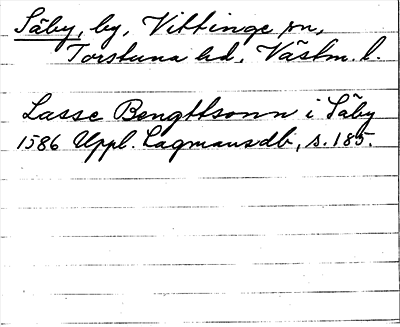 Säby, by, Vittinge sn,
Torstuna hd, Västm. l.
Lasse Bengttsonn i Säby
1586 Uppl. Lagmansdb, s. 185.